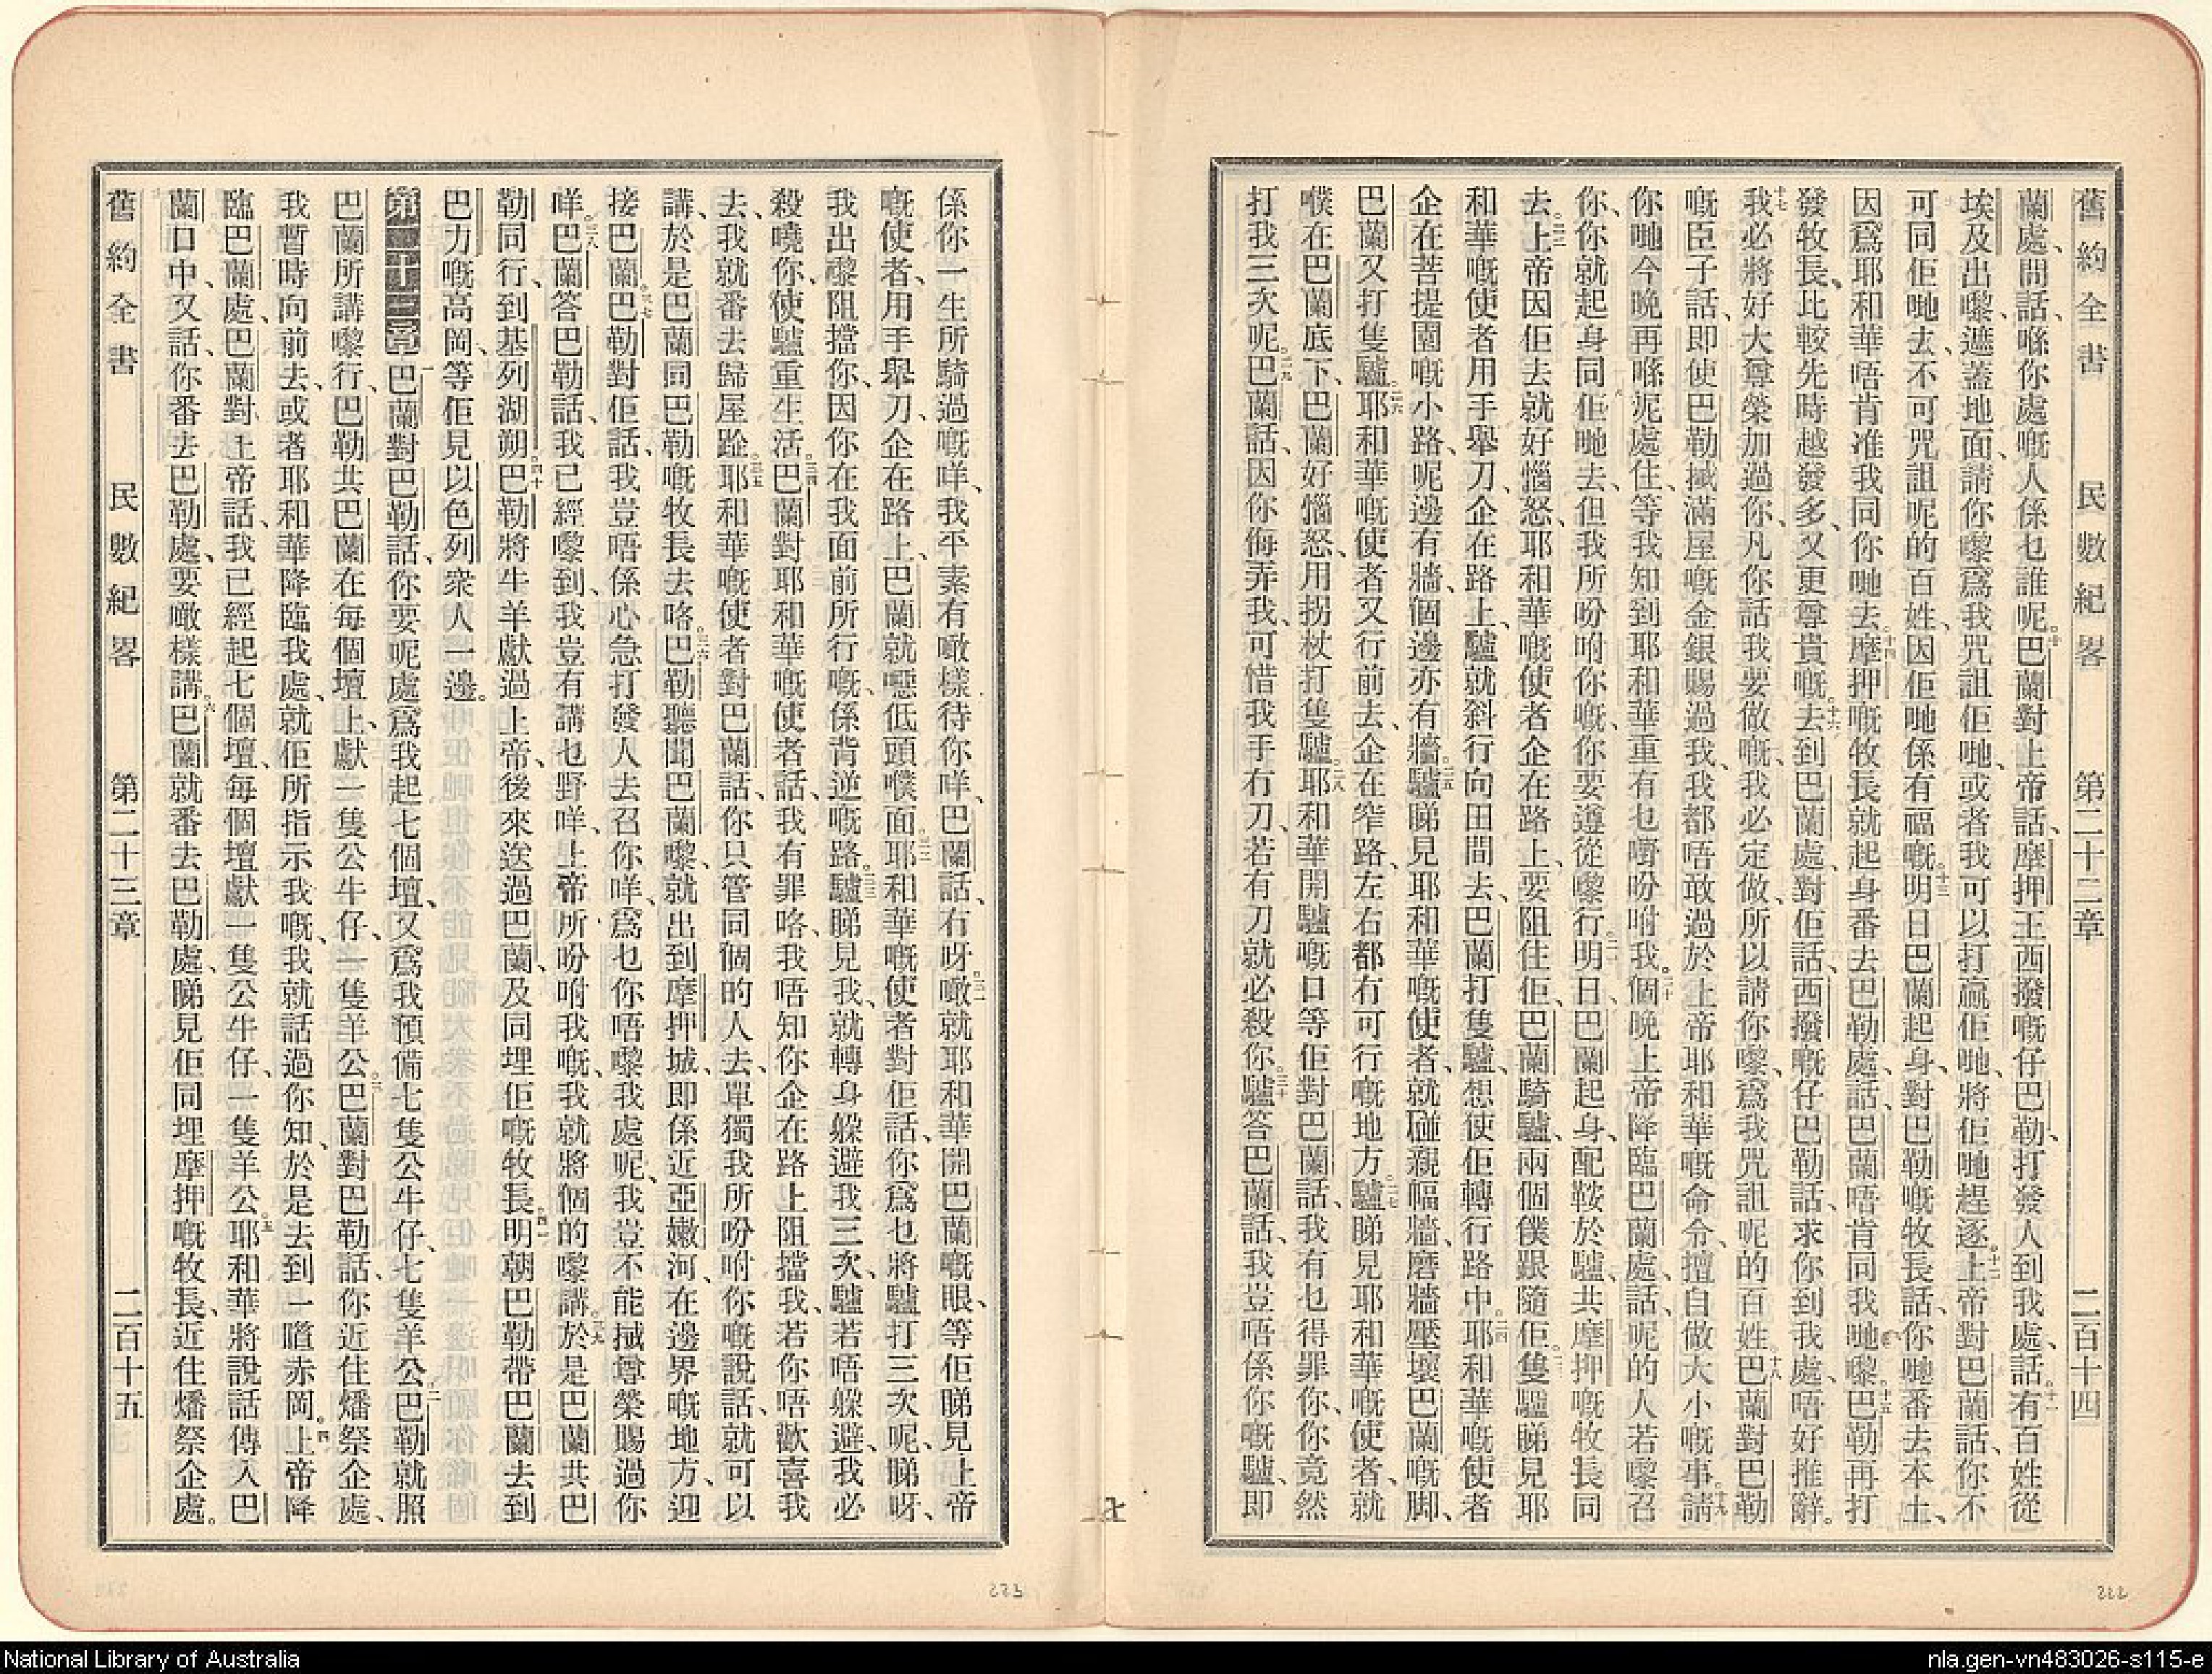 舊約全書　民數紀畧　第二十二章　二百十四
蘭處、問話、喺你處嘅人係乜誰呢。十巴蘭對上帝話、摩押王西撥嘅仔巴勒、打發人到我處、話。十一有百姓從
埃及出嚟、遮蓋地面、請你嚟爲我咒詛佢哋、或者我可以打贏佢哋、將佢哋趕逐。十二上帝對巴蘭話、你不
可同佢哋去、不可咒詛呢的百姓、因佢哋係有福嘅。十三明日巴蘭起身、對巴勒嘅牧長話、你哋番去本土、
因爲耶和華唔肯准我同你哋去。十四摩押嘅牧長就起身番去巴勒處、話、巴蘭唔肯同我哋嚟。十五巴勒再打
發牧長、比較先時越發多、又更尊貴嘅。十六去到巴蘭處、對佢話、西撥嘅仔巴勒話、求你到我處、唔好推辭。
十七我必將好大尊榮加過你、凡你話我要做嘅、我必定做、所以請你嚟、爲我咒詛呢的百姓。十八巴蘭對巴勒
嘅臣子話、即使巴勒摵滿屋嘅金銀賜過我、我都唔敢過於上帝耶和華嘅命令、擅自做大小嘅事。十九請
你哋今晚再喺呢處住、等我知到耶和華重有乜嘢吩咐我。二十個晚上帝降臨巴蘭處、話、呢的人若嚟召
你、你就起身同佢哋去、但我所吩咐你嘅、你要遵從嚟行。二一明日、巴蘭起身、配鞍於驢、共摩押嘅牧長同
去。二二上帝因佢去就好惱怒、耶和華嘅使者企在路上、要阻住佢、巴蘭騎驢、兩個僕跟隨佢。二三隻驢睇見耶
和華嘅使者用手舉刀、企在路上、驢就斜行向田間去、巴蘭打隻驢、想使佢轉行路中。二四耶和華嘅使者
企在菩提園嘅小路、呢邊有牆、個邊亦有牆。二五驢睇見耶和華嘅使者、就碰親幅牆、磨牆壓壞巴蘭嘅脚、
巴蘭又打隻驢。二六耶和華嘅使者又行前去、企在窄路、左右都冇可行嘅地方。二七驢睇見耶和華嘅使者、就
㒒在巴蘭底下、巴蘭好惱怒、用拐杖打隻驢。二八耶和華開驢嘅口、等佢對巴蘭話、我有乜得罪你、你竟然
打我三次呢。二九巴蘭話、因你侮弄我、可惜我手冇刀、若有刀就必殺你。三十驢答巴蘭話、我豈唔係你嘅驢、即
係你一生所騎過嘅咩、我平素有噉樣待你咩、巴蘭話、冇呀。三一噉就耶和華開巴蘭嘅眼、等佢睇見上帝
嘅使者、用手舉刀、企在路上、巴蘭就嗯低頭㒒面。三二耶和華嘅使者對佢話、你爲乜將驢打三次呢、睇呀、
我出嚟阻擋你、因你在我面前所行嘅、係背逆嘅路。三三驢睇見我、就轉身躲避我三次、驢若唔躲避、我必
殺曉你、使驢重生活。三四巴蘭對耶和華嘅使者話、我有罪咯、我唔知你企在路上阻擋我、若你唔歡喜我
去、我就番去歸屋跐。三五耶和華嘅使者對巴蘭話、你只管同個的人去、單獨我所吩咐你嘅說話、就可以
講、於是巴蘭同巴勒嘅牧長去咯。三六巴勒聽聞巴蘭嚟、就出到摩押城、即係近亞嫩河、在邊界嘅地方、迎
接巴蘭。三七巴勒對佢話、我豈唔係心急打發人去召你咩、爲乜你唔嚟我處呢、我豈不能摵尊榮賜過你
咩。三八巴蘭答巴勒話、我已經嚟到、我豈有講乜野咩、上帝所吩咐我嘅、我就將個的嚟講。三九於是巴蘭共巴
勒同行、到基列湖朔。四十巴勒將牛羊獻過上帝、後來送過巴蘭、及同埋佢嘅牧長。四一明朝巴勒帶巴蘭去到
巴力嘅高岡、等佢見以色列衆人一邊。
第二十三章　一巴蘭對巴勒話、你要呢處爲我起七個壇、又爲我預備七隻公牛仔、七隻羊公。二巴勒就照
巴蘭所講嚟行、巴勒共巴蘭在每個壇上、獻一隻公牛仔、一隻羊公。三巴蘭對巴勒話、你近住燔祭企處、
我暫時向前去、或者耶和華降臨我處、就佢所指示我嘅、我就話過你知、於是去到一噠赤岡。四上帝降
臨巴蘭處、巴蘭對上帝話、我已經起七個壇、每個壇獻一隻公牛仔、一隻羊公。五耶和華將說話傳入巴
蘭口中、又話、你番去巴勒處、要噉樣講。六巴蘭就番去巴勒處、睇見佢同埋摩押嘅牧長、近住燔祭企處。
舊約全書　民數紀畧　第二十三章　二百十五
七
222
223
National Library of Australia
nla.gen-vn483026-s115-e